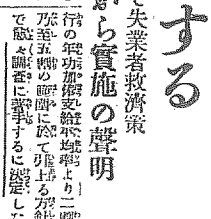 する
失業者救濟策
ら實施の聲明
行の年功加俸支給平均率より二
乃至五の範圍に於て引上る方針
で愈々調査に著手するに決定した